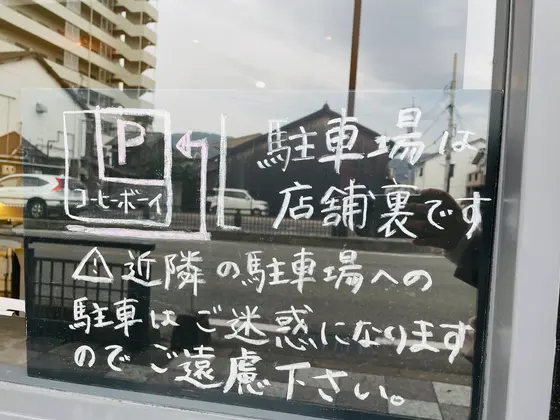 P
コーヒーボーイ
駐車場は
店舗裏です
⚠近隣の駐車場への
駐車はご迷惑になります
のでご遠慮下さい。